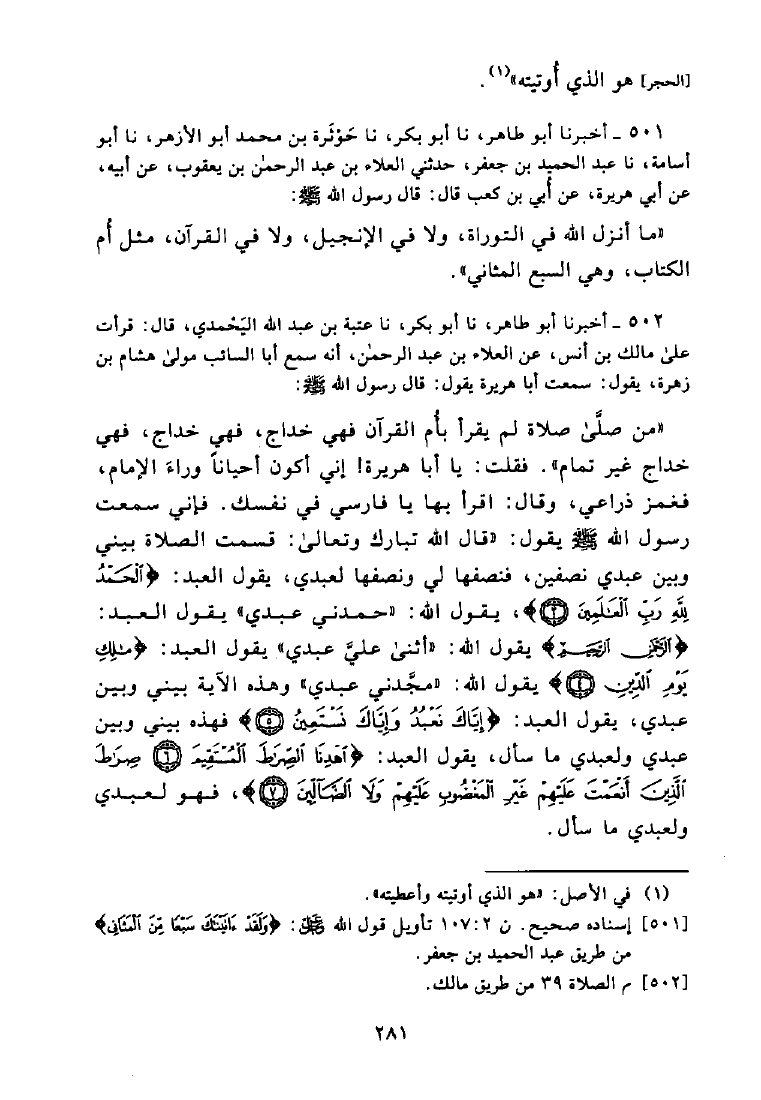 [الحجر] هو الذي أُوتيته»(١).
٥٠١ ـ أخبرنا أبو طاهر، نا أبو بكر، نا حَوْثَرة بن محمد أبو الأزهر، نا أبو
أسامة، نا عبد الحميد بن جعفر، حدثني العلاء بن عبد الرحمٰن بن يعقوب، عن أبيه،
عن أبي هريرة، عن أُبي بن كعب قال: قال رسول الله ﷺ:
«ما أنزل الله في التوراة، ولا في الإنجيل، ولا في القرآن، مثل أُم
الكتاب، وهي السبع المثاني».
٥٠٢ ـ أخبرنا أبو طاهر، نا أبو بكر، نا عتبة بن عبد الله اليَحْمدي، قال: قرأت
علىٰ مالك بن أنس، عن العلاء بن عبد الرحمٰن، أنه سمع أبا السائب مولىٰ هشام بن
زهرة، يقول: سمعت أبا هريرة يقول: قال رسول الله ﷺ:
«من صلَّىٰ صلاة لم يقرأ بأُم القرآن فهي خداج، فهي خداج، فهي
خداج غير تمام». فقلت: يا أبا هريرة! إني أكون أحياناً وراءَ الإمام،
فغمز ذراعي، وقال: اقرأ بها يا فارسي في نفسك. فإني سمعت
رسول الله ﷺ يقول: «قال الله تبارك وتعالىٰ: قسمت الصلاة بيني
وبين عبدي نصفين، فنصفها لي ونصفها لعبدي، يقول العبد: ﴿ٱلْحَمْدُ
لِلَّهِ رَبِّ ٱلْعَٰلَمِينَ ۝٢﴾، يقول الله: «حمدني عبدي» يقول العبد:
﴿ٱلرَّحْمَٰنِ ٱلرَّحِيمِ﴾ يقول الله: «أثنىٰ عليَّ عبدي» يقول العبد: ﴿مَٰلِكِ
يَوْمِ ٱلدِّينِ ۝٤﴾ يقول الله: «مجَّدني عبدي» وهذه الآية بيني وبين
عبدي، يقول العبد: ﴿إِيَّاكَ نَعْبُدُ وَإِيَّاكَ نَسْتَعِينُ ۝٥﴾ فهذه بيني وبين
عبدي ولعبدي ما سأل، يقول العبد: ﴿ٱهْدِنَا ٱلصِّرَٰطَ ٱلْمُسْتَقِيمَ ۝٦ صِرَٰطَ
ٱلَّذِينَ أَنْعَمْتَ عَلَيْهِمْ غَيْرِ ٱلْمَغْضُوبِ عَلَيْهِمْ وَلَا ٱلضَّآلِّينَ ۝٧﴾، فهو لعبدي
ولعبدي ما سأل.
(١) في الأصل: «هو الذي أوتيته وأعطيته».
[٥٠١] إسناده صحيح. ن ٢:١٠٧ تأويل قول الله ﷻ: ﴿وَلَقَدْ ءَاتَيْنَٰكَ سَبْعًا مِّنَ ٱلْمَثَانِي﴾
من طريق عبد الحميد بن جعفر.
[٥٠٢] م الصلاة ٣٩ من طريق مالك.
٢٨١